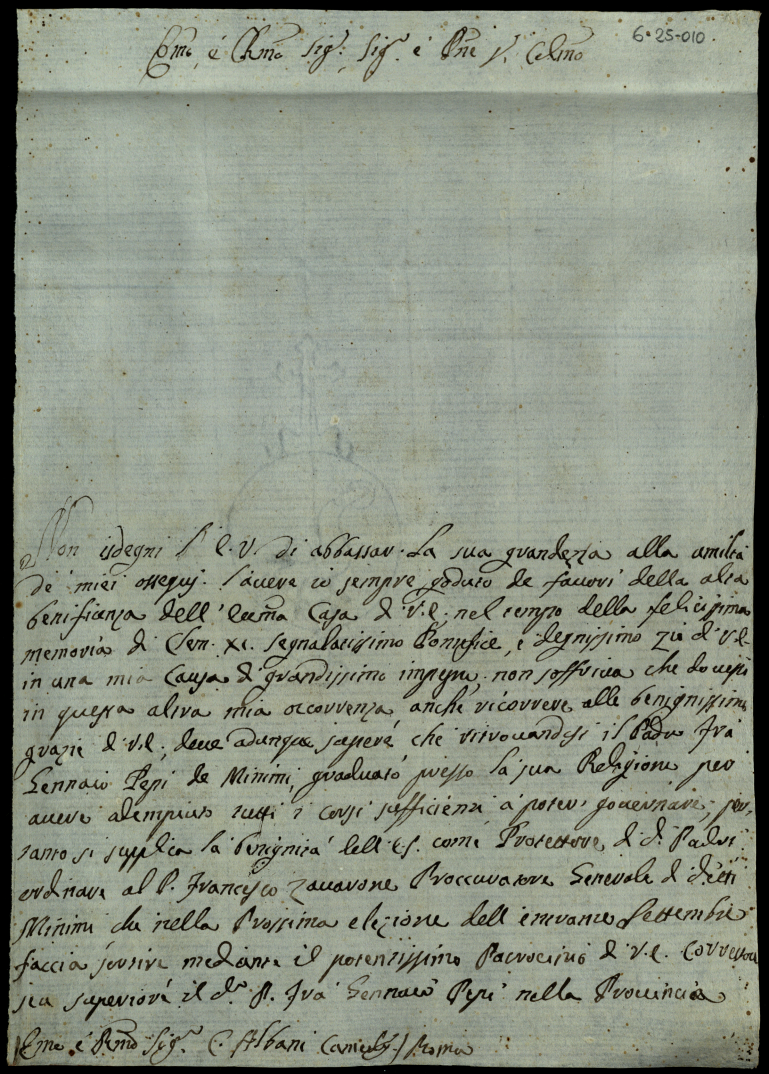 6-25-010
Emo, é Rmo Sigr: Sigr. é Pne
Non isdegni l' E. V. di abbassar la sua grandezza alla umiltà
de' miei ossequj. l'avere io sempre goduto de favori della alta
benificenza dell' Eccma Casa di V. E. nel tempo della felicissima
memoria di Clem. XI. segnalatissimo Pontefice, e degnissimo zio di V. E.
in una mia Causa di grandissimo impegno, non soffriva che dovessi
in questa altra mia occorrenza anche ricorrere alle benignissime
grazie di V. E; deve adunque sapere che ritrovandosi il Padre Frà
Gennaro Pepi de Minimi, graduato presso la sua Religione per
avere adempiuto tutti i corsi sufficienti à poter governare; per-
tanto si supplica la benignità dell' E. S. come Protettore di d. Padri
ordinare al P. Francesco Zavarone Proccuratore Generale di detti
Minimi che nella Prossima elezione dell' entrante Settembre
faccia sortire mediante il potentissimo Patrocinio di V. E. Correttore
sia superiore il do. P. Frà Gennaro Pepi nella Provincia
Emo é Rmo Sigr. C. Albani Roma